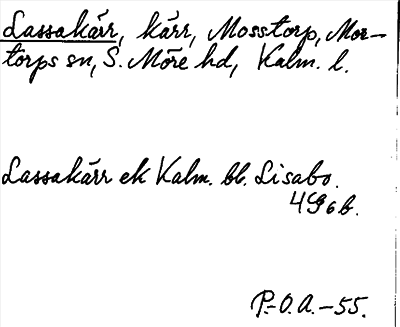 Lassakärr, kärr, Mosstorp, Mor-
torps sn, S. Möre hd, Kalm. l.
Lassakärr ek Kalm. bl. Lisabo.
4G6b.
P.-O.A.-55.